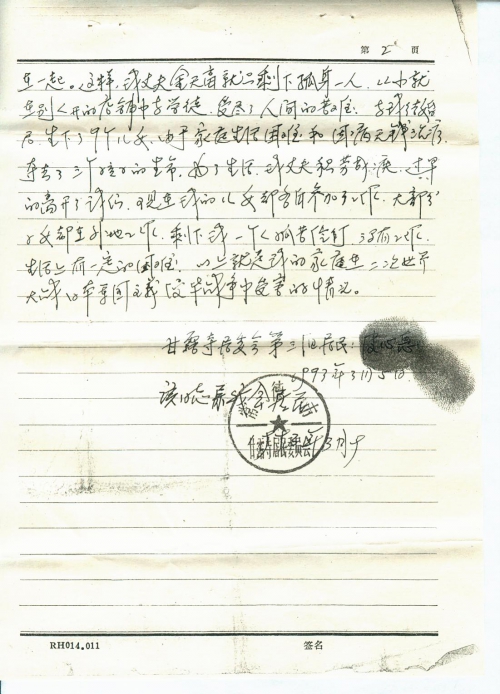 第 2 页
在一起。这样,我丈夫金天富就只剩下孤身一人,从小就
在别人开的店铺中当学徒,受尽了人间的苦难。与我结婚
后生下了9个儿女,由于家庭生活困难和因病无钱治疗,
夺去了三个孩子的生命。为了生活,我丈夫积劳成疾,过早
的离开了我们。现在我的儿女都各自参加了工作,大部分
儿女都在外地工作,剩下我一个人孤苦伶仃,没有工作,
生活上有一定的困难。以上就是我的家庭在二次世界
大战日本帝国主义侵华战争中受害的情况。
甘露寺居委会第三组居民:
1993年3月5日
该同志系我会
居民委员会
3月
RH014.011
签名